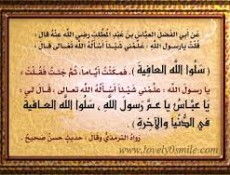 عن أبي الفضل العباس بن عبد المطلب رضي الله عنه قال :
قلت يا رسول الله : علمني شيئا أسأله الله تعالى, قال :
( سلوا الله العافية ) . فمكثت أياما, ثم جئت فقلت :
يا رسول الله : علمني شيئا أسأله الله تعالى , قال لي :
( يا عباس يا عم رسول الله , سلوا الله العافية
في الدنيا والآخرة )
رواه الترمذي وقال : حديث حسن صحيح .
www.lovely0smile.com